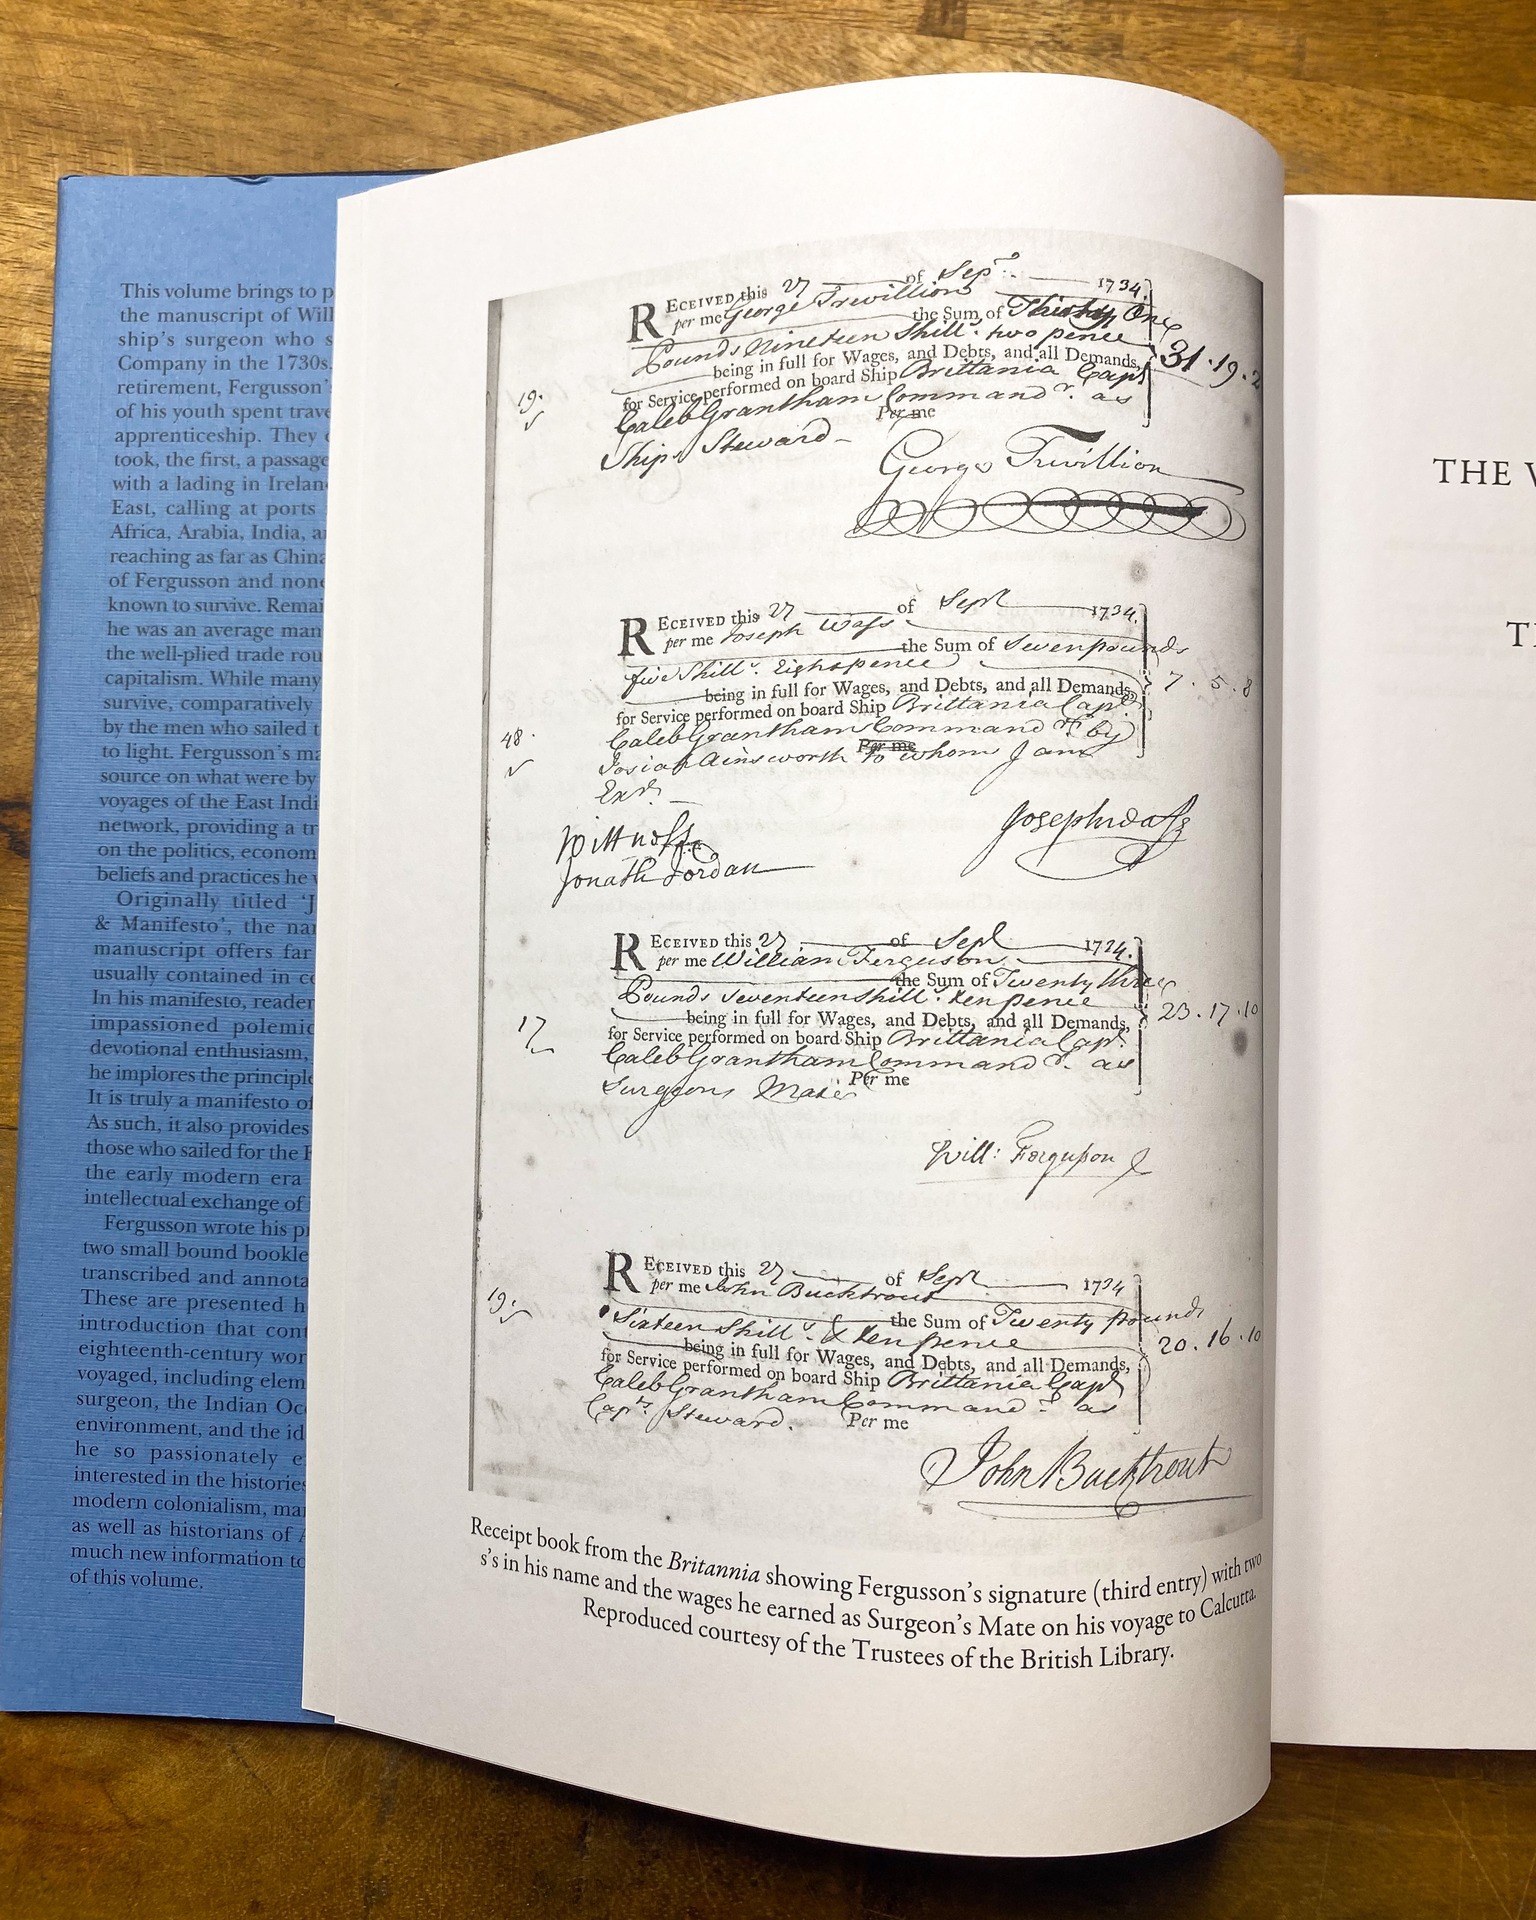 This volume brings to p
the manuscript of Will
ship's surgeon who s
Company in the 1730s.
retirement, Fergusson'
of his youth spent trave
apprenticeship. They
took, the first, a passage
with a lading in Irelan
East, calling at ports
Africa, Arabia, India, a
reaching as far as China
of Fergusson and none
known to survive. Remai
he was an average man
the well-plied trade rou
capitalism. While many
survive, comparatively
by the men who sailed t
to light. Fergusson's ma
source on what were by
voyages of the East Indi
network, providing a tr
on the politics, econom
beliefs and practices he
Originally titled 'J
& Manifesto', the na
manuscript offers far
usually contained in co
In his manifesto, reader
impassioned polemic
devotional enthusiasm,
he implores the principle
It is truly a manifesto of
As such, it also provides
those who sailed for the
the early modern era
intellectual exchange of
Fergusson wrote his pr
two small bound bookle
transcribed and annota
These are presented h
introduction that cont
eighteenth-century wor
voyaged, including elem
surgeon, the Indian Oc
environment, and the id
he so passionately e
interested in the histories
modern colonialism, mar
as well as historians of
much new information to
of this volume.
RECEIVED this 27 of Sept 1734.
per me George Trevillion the Sum of Thirty One
Pounds nineteen Shill.s two pence
being in full for Wages, and Debts, and all Demands, 31.19.2
for Service performed on board Ship Brittania Capt
19. Caleb Grantham Command.r as
Ships Steward Per me
George Trevillion
RECEIVED this 27 of Sept 1734.
per me Joseph Wass the Sum of Seven pounds
five Shill.s Eightpence
being in full for Wages, and Debts, and all Demands, 7.5.8
for Service performed on board Ship Brittania Capt
48. Caleb Grantham Command.r by
Josiah Ainsworth Per me to whom I am
Ex.r
Joseph Wass
Jonath Jordan
RECEIVED this 27 of Sept 1734.
per me William Ferguson the Sum of Twenty three
Pounds Seventeen Shill.s ten pence
being in full for Wages, and Debts, and all Demands, 23.17.10
17 for Service performed on board Ship Brittania Capt.
Caleb Grantham Command.r as
Surgeons Mate Per me
Will: Fergusson
RECEIVED this 27 of Sept 1734
19. per me John Bucktrout
Sixteen Shill.s & ten pence the Sum of Twenty pounds
being in full for Wages, and Debts, and all Demands, 20.16.10
for Service performed on board Ship Brittania Capt
Caleb Grantham Command.r as
Capts Steward. Per me
John Bucktrout
Receipt book from the Britannia showing Fergusson's signature (third entry) with two
s's in his name and the wages he earned as Surgeon's Mate on his voyage to Calcutta.
Reproduced courtesy of the Trustees of the British Library.
THE